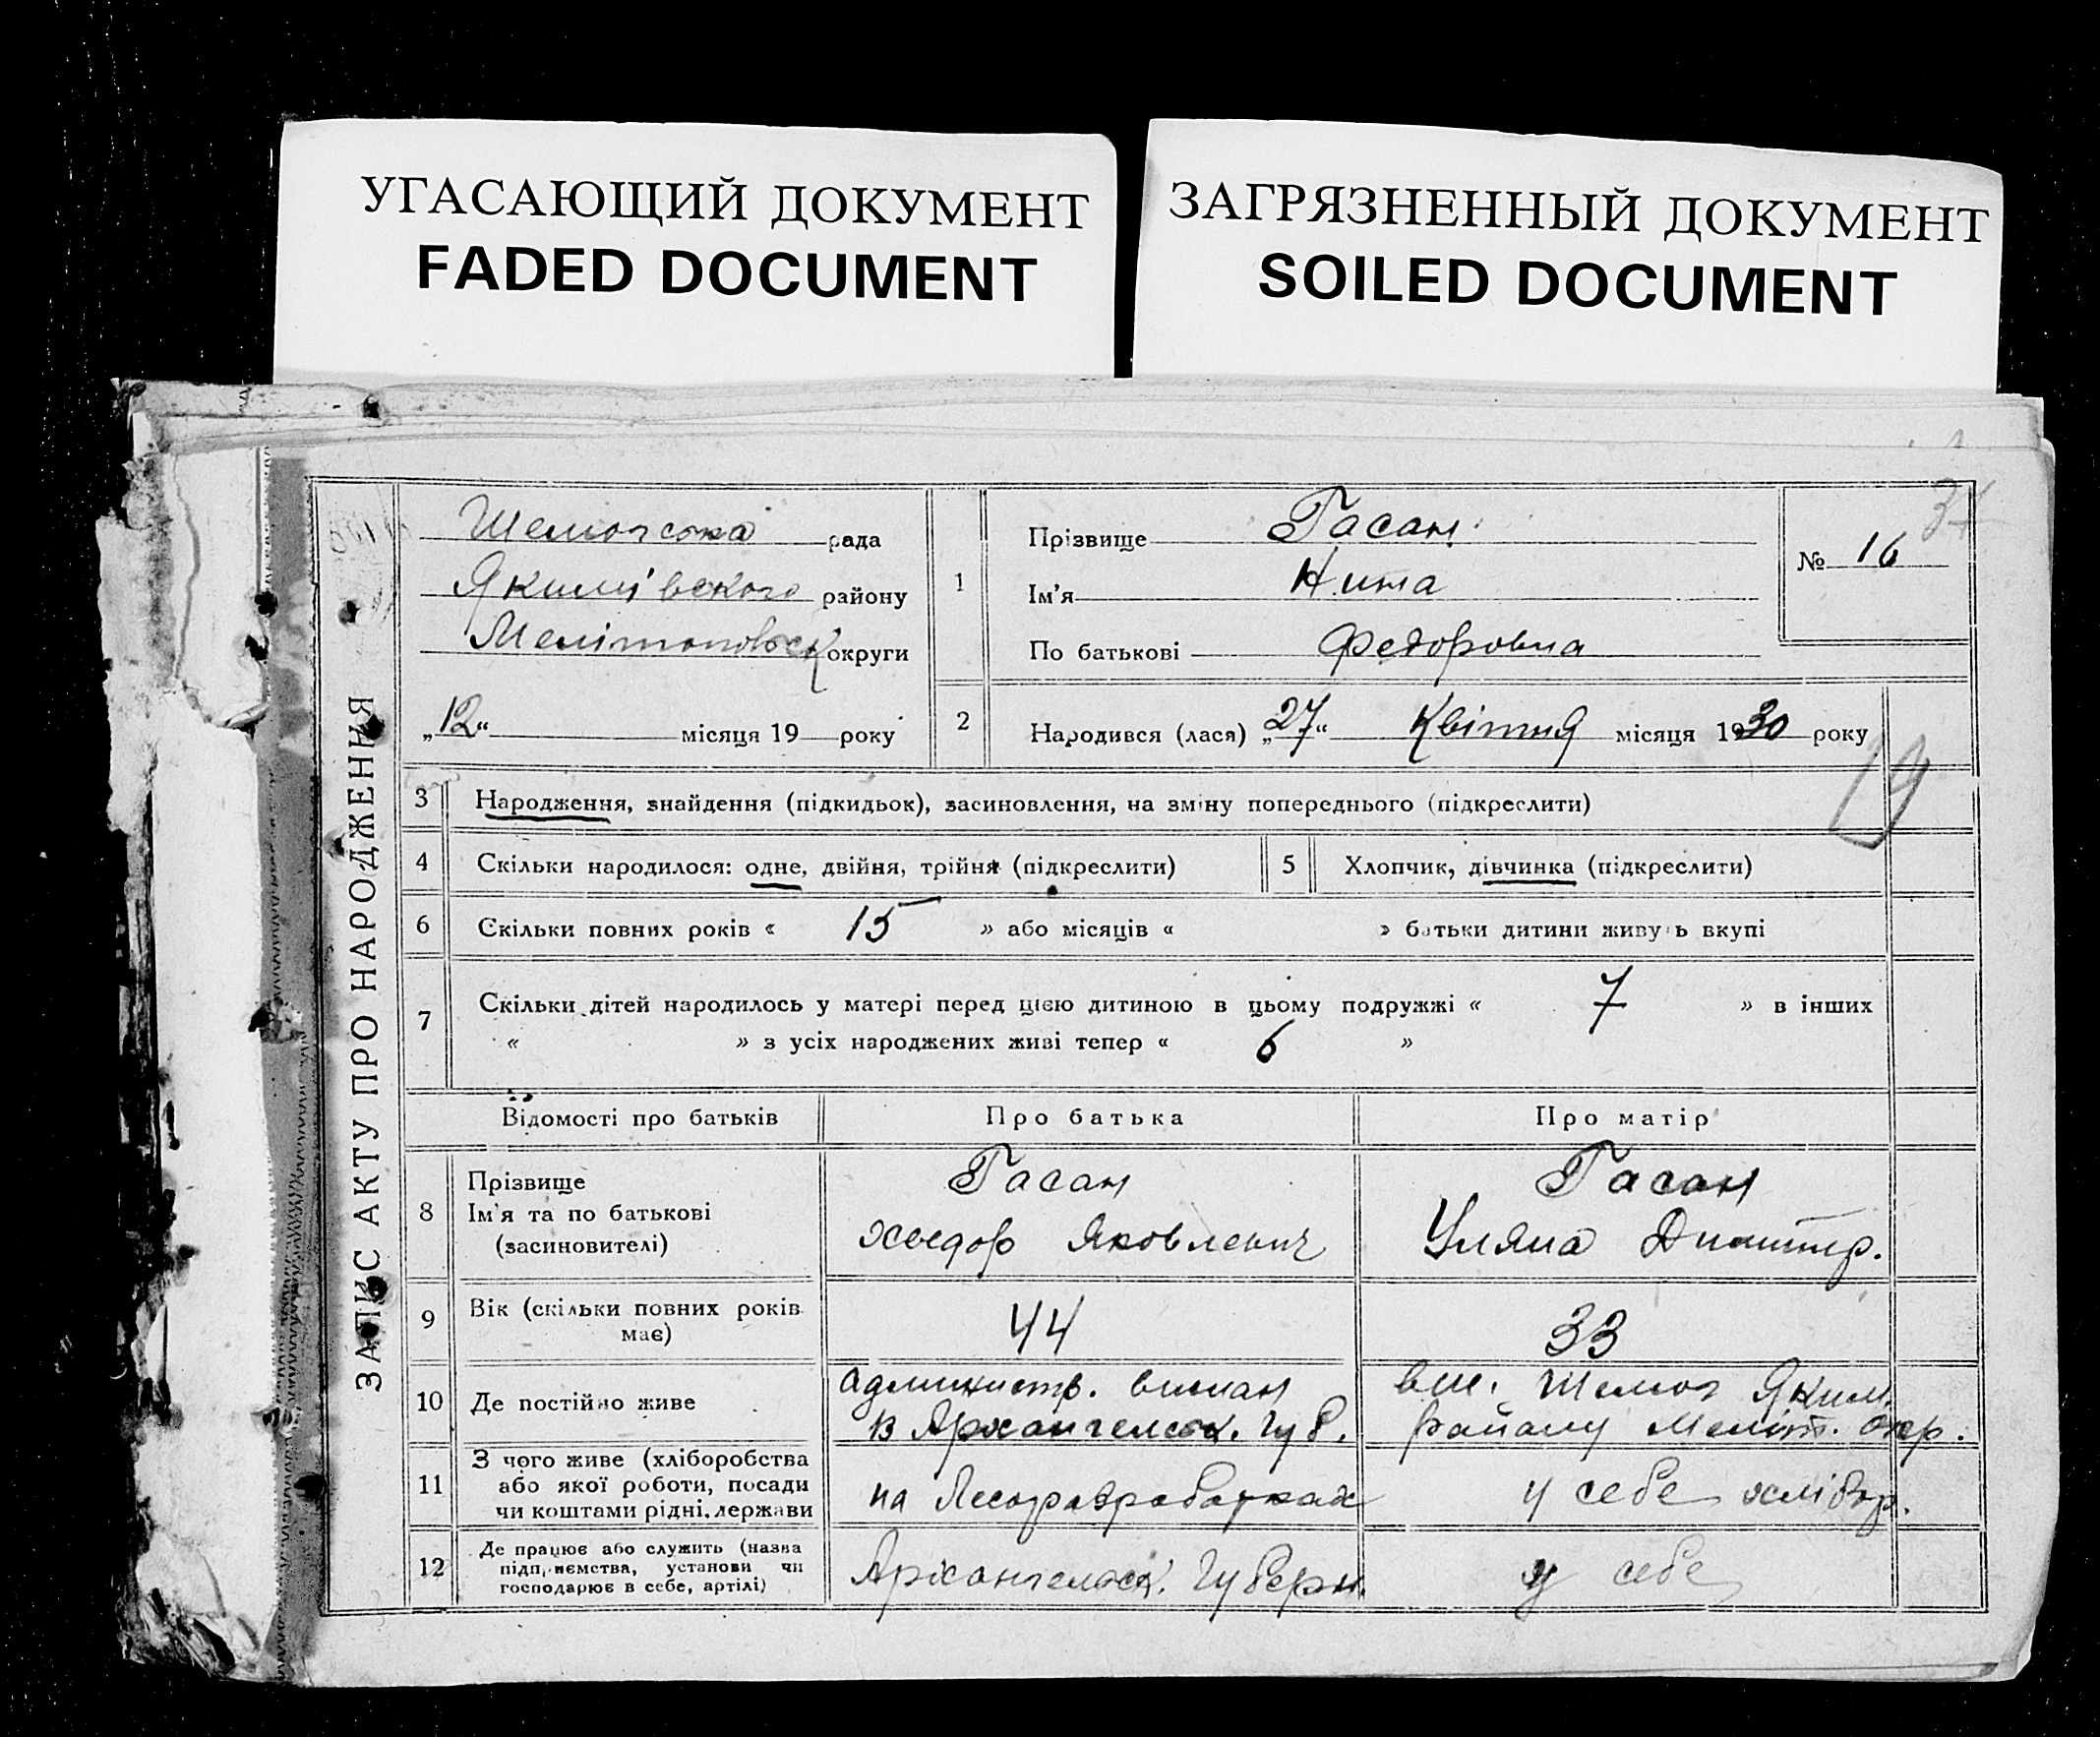 УГАСАЮЩИЙ ДОКУМЕНТ
FADED DOCUMENT
ЗАГРЯЗНЕННЫЙ ДОКУМЕНТ
SOILED DOCUMENT
ЗАПИС АКТУ ПРО НАРОДЖЕННЯ
Шелюгська рада
Якимівского району
Мелітопольск округи
„12“ місяця 19 року
1
Прізвище Гасан
Ім'я Нина
По батькові Федоровна
№ 16
34
2
Народився (лася) „27“ Квітня місяця 1930 року
19
3 Народження, знайдення (підкидьок), засиновлення, на зміну попереднього (підкреслити)
4 Скільки народилося: одне, двійня, трійня (підкреслити)
5 Хлопчик, дівчинка (підкреслити)
6 Скільки повних років « 15 » або місяців « » батьки дитини живуть вкупі
7 Скільки дітей народилось у матері перед цією дитиною в цьому подружжі « 7 » в інших
« » з усіх народжених живі тепер « 6 »
Відомості про батьків
Про батька
Про матір
8 Прізвище
Ім'я та по батькові
(засиновителі)
Гасан
Хведор Яковлевич
Гасан
Уляна Дмитр.
9 Вік (скільки повних років
має)
44
33
10 Де постійно живе
Администр. вислан
в Архангельск. губ.
Шелюг Яким.
району Меліт. окр.
11 З чого живе (хліборобства
або якої роботи, посади
чи коштами рідні, держави
на Лесоразработках
у себе хлібор.
12 Де працює або служить (назва
підпр.ємства, установи чи
господарює в себе, артілі)
Архангельск. Губерн.
у себе